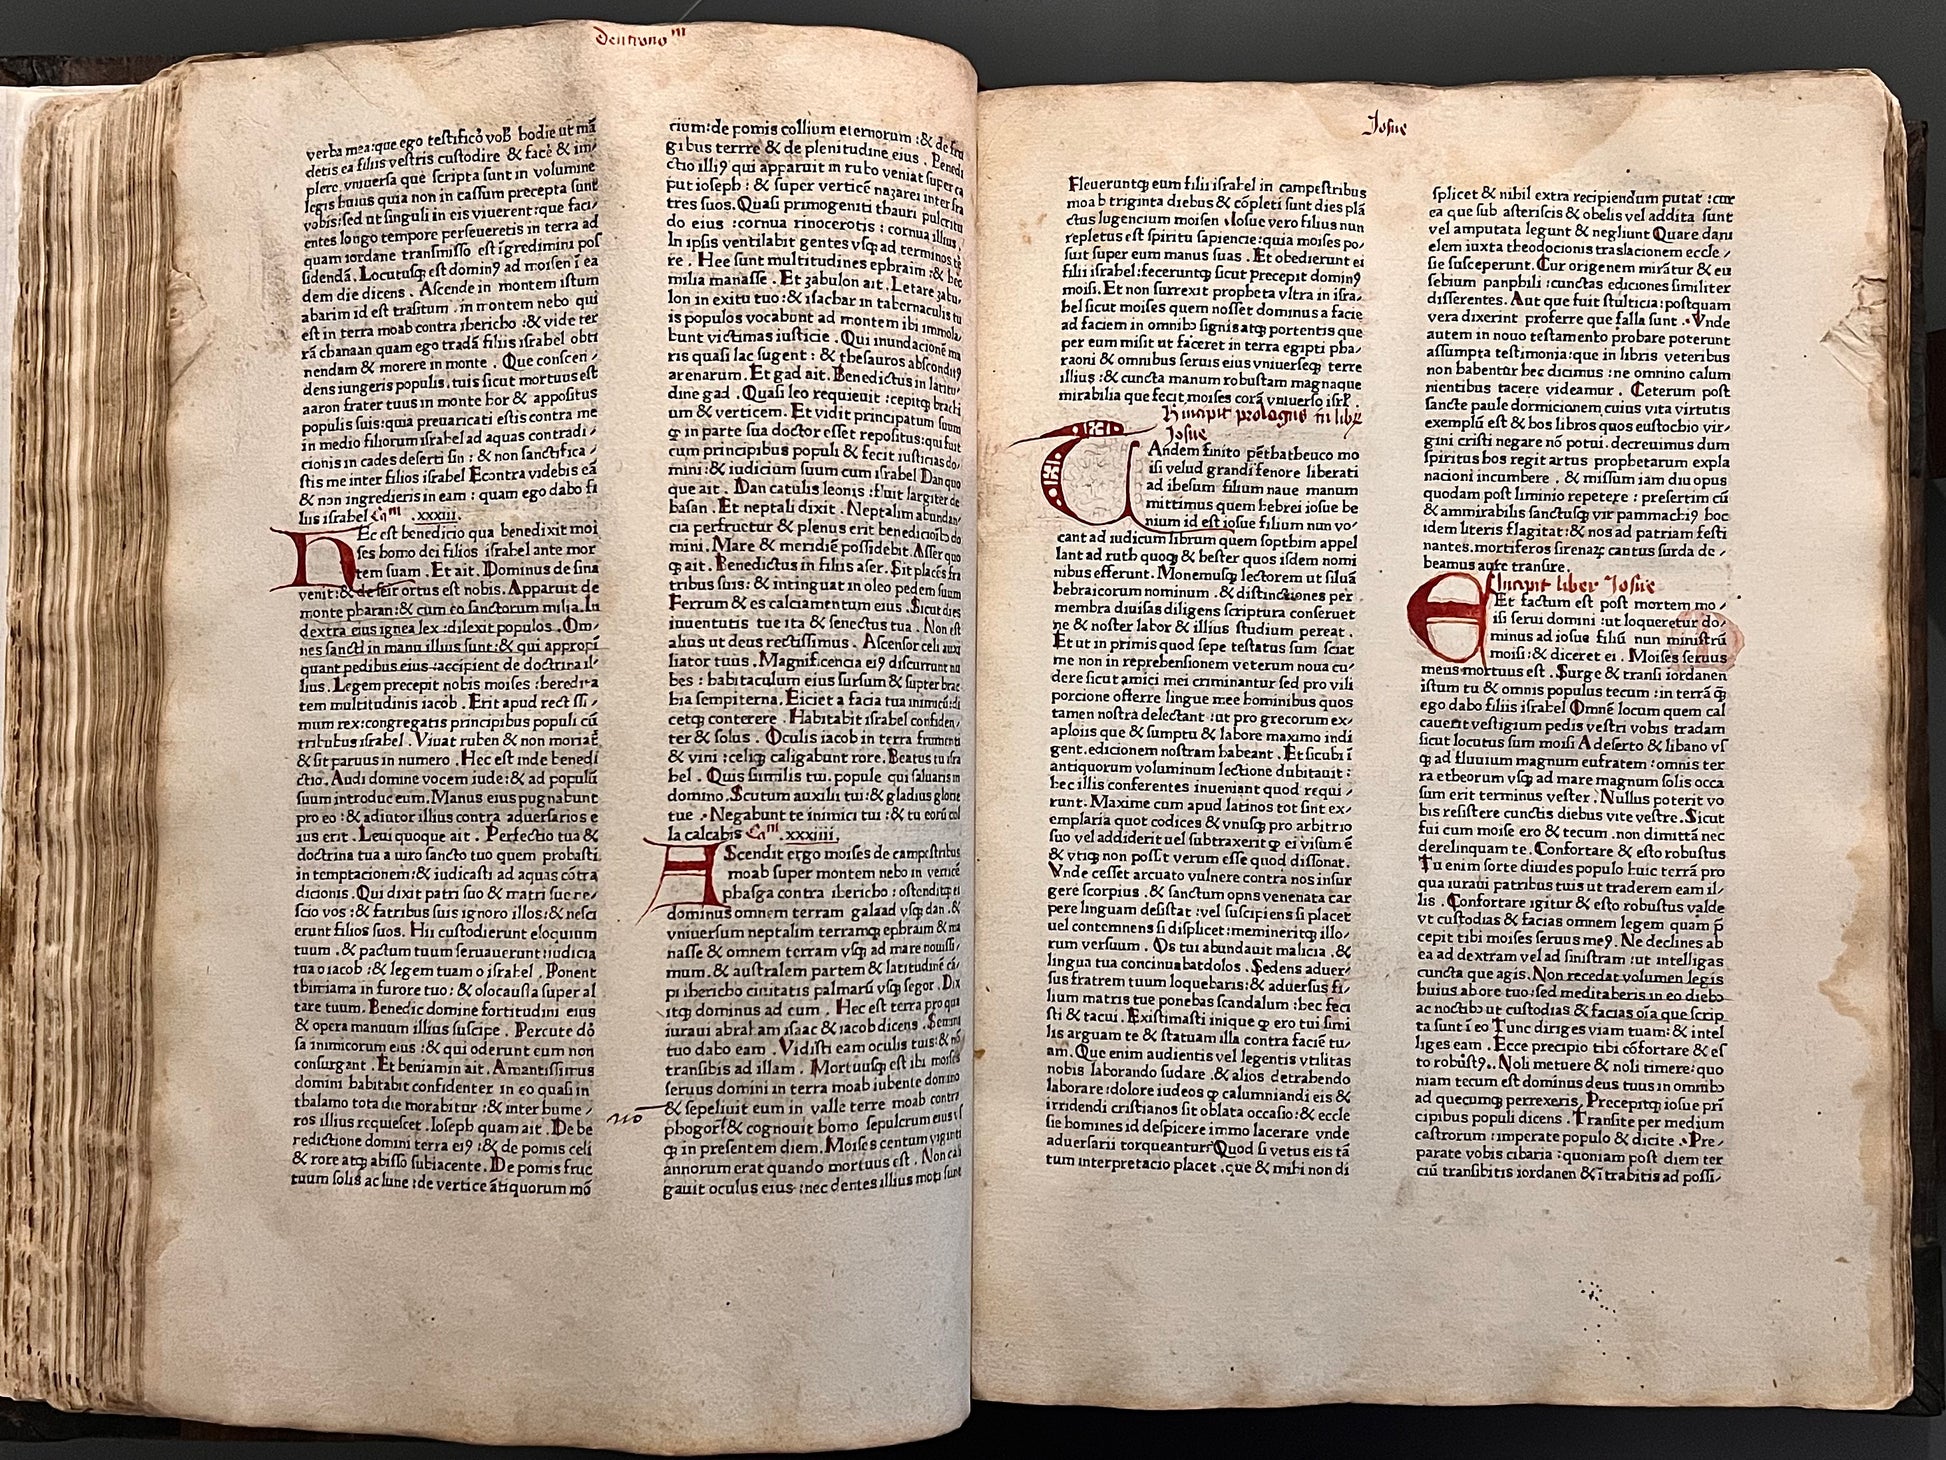 Deutrono m
verba mea: que ego testifico vob hodie ut mā
detis ea filiis vestris custodire & facē & im/
plere. vniuersa quē scripta sunt in volumine
legis huius quia non in cassum precepta sunt
vobis: sed ut singuli in eis viuerent: que faci/
entes longo tempore perseueretis in terra ad
quam iordane transmisso est īgredimini pos
sidendā. Locutusqꝫ est dominꝰ ad moisen ī ea
dem die dicens. Ascende in montem istum
abarim id est trāsitum. in montem nebo qui
est in terra moab contra ihericho: & vide ter
rā chanaan quam ego tradā filiis israhel obti
nendam & morere in monte. Que conscen/
dens iungeris populis. tuis sicut mortuus est
aaron frater tuus in monte hor & appositus
populis suis: quia preuaricati estis contra me
in medio filiorum israhel ad aquas contradi/
cionis in cades deserti sin: & non sanctifica/
stis me inter filios israhel Econtra videbis eā
& non ingredieris in eam: quam ego dabo fi
liis israhel Cam .xxxiii.
HEc est benedicio qua benedixit moi
ses homo dei filios israhel ante mor
tem suam. Et ait. Dominus de sina
venit: & de seir ortus est nobis. Apparuit de
monte pharan: & cum eo sanctorum milia. In
dextra eius ignea lex: dilexit populos. Om/
nes sancti in manu illius sunt: & qui appropī
quant pedibus eius accipient de doctrina il/
lius. Legem precepit nobis moises: heredita
tem multitudinis iacob. Erit apud rectissi/
mum rex: congregatis principibus populi cū
tribubus israhel. Viuat ruben & non moriat
& sit paruus in numero. Hec est inde benedi
ctio. Audi domine vocem iude: & ad populū
suum introduc eum. Manus eius pugnabunt
pro eo: & adiutor illius contra aduersarios e
ius erit. Leui quoque ait. Perfectio tua &
doctrina tua a uiro sancto tuo quem probasti
in temptacionem: & iudicasti ad aquas cōtra
dicionis. Qui dixit patri suo & matri sue ne/
scio vos: & fatribus suis ignoro illos: & nesci
erunt filios suos. Hii custodierunt eloquium
tuum. & pactum tuum seruauerunt: iudicia
tua o iacob: & legem tuam o israhel. Ponent
thimiama in furore tuo: & olocausta super al
tare tuum. Benedic domine fortitudini eius
& opera manuum illius suscipe. Percute dō
sa inimicorum eius: & qui oderunt eum non
consurgant. Et beniamin ait. Amantissimus
domini habitabit confidenter in eo quasi in
thalamo tota die morabitur: & inter hume/
ros illius requiescet. Ioseph quam ait. De be
redictione domini terra eiꝰ: & de pomis celi
& rore atqꝫ abisso subiacente. De pomis fruc
tuum solis ac lune: de vertice ātiquorum mō
cium: de pomis collium eternorum: & de fru
gibus terrre & de plenitudine eius. Benedi
ctio illiꝰ qui apparuit in rubo veniat super ca
put ioseph: & super verticē nazarei inter fra
tres suos. Quasi primogeniti thauri pulcritu
do eius: cornua rinocerotis: cornua illius.
In ipsis ventilabit gentes vsqꝫ ad terminos tē
re. Hee sunt multitudines ephraim: & hec
milia manasse. Et zabulon ait. Letare zabu/
lon in exitu tuo: & isachar in tabernaculis tu
is populos vocabunt ad montem ibi immola
bunt victimas iusticie. Qui inundacionē ma
ris quasi lac sugent: & thesauros absconditꝰ
arenarum. Et gad ait. Benedictus in latitu/
dine gad. Quasi leo requieuit: cepitqꝫ brachi
um & verticem. Et vidit principatum suum
ꝙ in parte sua doctor esset repositus: qui fuit
cum principibus populi & fecit iusticias do/
mini: & iudicium suum cum israhel Dan quo
que ait. Dan catulus leonis: fluit largiter de
basan. Et neptali dixit. Neptalim abundan/
cia perfructur & plenus erit benedicioībꝰ do
mini. Mare & meridiē possidebit. Asser quo
qꝫ ait. Benedictus in filiis aser. Sit placēs fra
tribus suis: & intinguat in oleo pedem suum
Ferrum & es calciamentum eius. Sicut dies
iuuentutis tue ita & senectus tua. Non est
alius ut deus rectissimus. Ascensor celi auxi
liator tuus. Magnificencia eiꝰ discurrunt nu
bes: habitaculum eius sursum & supter brac
hia sempiterna. Eiciet a facia tua inimicū: di
cetqꝫ conterere. Habitabit israhel confiden/
ter & solus. Oculis iacob in terra frumenti
& vini: celiqꝫ caligabunt rore. Beatus tu isra
hel. Quis similis tui. popule qui saluaris in
domino. Scutum auxilii tui: & gladius glorie
tue. Negabunt te inimici tui: & tu eorū col
la calcabis Cam .xxxiiii.
AScendit ergo moises de campestribus
moab super montem nebo in verticē
phasga contra ihericho: ostenditqꝫ ei
dominus omnem terram galaad vsqꝫ dan. &
vniuersum neptalim terramqꝫ ephraim & ma
nasse & omnem terram vsqꝫ ad mare nouissi/
mum. & australem partem & latitudinē cā/
pi ihericho ciuitatis palmarū vsqꝫ segor. Dix
itqꝫ dominus ad eum. Hec est terra pro qua
iuraui abraham isaac & iacob dicens. Semini
tuo dabo eam. Vidisti eam oculis tuis: & nō
transibis ad illam. Mortuusqꝫ est ibi moises
seruus domini in terra moab iubente domino
& sepeliuit eum in valle terre moab contra
phogor: & cognouit homo sepulcrum eius vs
qꝫ in presentem diem. Moises centum viginti
annorum erat quando mortuus est. Non cali
gauit oculus eius: nec dentes illius moti sunt
nō
Iosue
Fleueruntqꝫ eum filii israhel in campestribus
moab triginta diebus & cōpleti sunt dies plā
ctus lugencium moisen. Iosue vero filius nun
repletus est spiritu sapiencie: quia moises po/
suit super eum manus suas. Et obedierunt ei
filii israhel: feceruntqꝫ sicut precepit dominꝰ
moisi. Et non surrexit propheta vltra in isra/
hel sicut moises quem nosset dominus a facie
ad faciem in omnibꝰ signis atqꝫ portentis que
per eum misit ut faceret in terra egipti pha/
raoni & omnibus seruis eius vniuerseqꝫ terre
illius: & cuncta manum robustam magnaque
mirabilia que fecit moises corā vniuerso isrl.
Incipit prologus in libꝝ
Iosue
TAndem finito pēthatheuco mo
isi velud grandi fenore liberati
ad ihesum filium naue manum
mittimus quem hebrei iosue be
nnium id est iosue filium nun vo/
cant ad iudicum librum quem sopthim appel
lant ad ruth quoqꝫ & hester quos isdem nomi
nibus efferunt. Monemusqꝫ lectorem ut siluā
hebraicorum nominum. & distinctiones per
membra diuisas diligens scriptura conseruet
ne & noster labor & illius studium pereat.
Et ut in primis quod sepe testatus sum sciat
me non in reprehensionem veterum noua cu/
dere sicut amici mei criminantur sed pro vili
porcione offerre lingue mee hominibus quos
tamen nostra delectant: ut pro grecorum ex/
aploiis que & sumptu & labore maximo indi
gent. edicionem nostram habeant. Et sicubi ī
antiquorum voluminum lectione dubitauit:
hec illis conferentes inueniant quod requi/
runt. Maxime cum apud latinos tot sint ex/
emplaria quot codices & vnusqꝫ pro arbitrio
suo vel addiderit uel subtraxerit ꝙ ei visum ē
& vtiqꝫ non possīt verum esse quod dissonat.
Vnde cesset arcuato vulnere contra nos insur
gere scorpius. & sanctum opus venenata car
pere linguam desistat: vel suscipiens si placet
uel contemnens si displicet: memineritqꝫ illo/
rum versuum. Os tui abundauit malicia. &
lingua tua concinuabat dolos. Sedens aduer/
sus fratrem tuum loquebaris: & aduersus fi/
lium matris tue ponebas scandalum: hec feci
sti & tacui. Existimasti inique ꝙ ero tui simi
lis arguam te & statuam illa contra faciē tu/
am. Que enim audientis vel legentis vtilitas
nobis laborando sudare. & alios detrahendo
laborare: dolore iudeos ꝙ calumniandi eis &
irridendi cristianos sit oblata occasio: & eccle
sie homines id despicere immo lacerare vnde
aduersarii torqueantur. Quod si vetus eis tā
tum interpretacio placet. que & mihi non di
splicet & nihil extra recipiendum putat: cur
ea que sub asteriscis & obelis vel addita sunt
vel amputata legunt & negliunt Quare dani
elem iuxta theodocionis traslacionem eccle/
sie susceperunt. Cur origenem mirātur & eu
sebium panphili: cunctas ediciones similiter
disserentes. Aut que fuit stulticia: postquam
vera dixerint proferre que falsa sunt. Vnde
autem in nouo testamento probare poterunt
assumpta testimonia: que in libris veteribus
non habentur hec dicimus: ne omnino calum
nientibus tacere videamur. Ceterum post
sancte paule dormicionem cuius vita virtutis
exemplū est & hos libros quos eustochio vir/
gini cristi negare nō potui. decreuimus dum
spiritus hos regit artus prophetarum expla
nacioni incumbere. & missum iam diu opus
quodam post liminio repetere: presertim cū
& ammirabilis sanctusqꝫ vir pammachiꝰ hoc
idem literis flagitat: & nos ad patriam festi
nantes. mortiferos sirenaꝝ cantus surda de/
beamus aure transire.
Incipit liber Iosue
Et factum est post mortem mo/
isi serui domini: ut loqueretur do/
minus ad iosue filiū nun ministrū
moisi: & diceret ei. Moises seruus
meus mortuus est. Surge & transi iordanen
istum tu & omnis populus tecum: in terrā qꝫ
ego dabo filiis israhel Omnē locum quem cal
cauerit vestigium pedis vestri vobis tradam
sicut locutus sum moisi A deserto & libano vs
qꝫ ad fluuium magnum eufratem: omnis ter
ra etheorum vsqꝫ ad mare magnum solis occa
sum erit terminus vester. Nullus poterit vo
bis resistere cunctis diebus vite vestre. Sicut
fui cum moise ero & tecum. non dimittā nec
derelinquam te. Confortare & esto robustus
Tu enim sorte diuides populo huic terrā pro
qua iuraui patribus tuis ut traderem eam il/
lis. Confortare igitur & esto robustus valde
vt custodias & facias omnem legem quam p̄
cepit tibi moises seruus meꝰ. Ne declines ab
ea ad dextram vel ad sinistram: ut intelligas
cuncta que agis. Non recedat volumen legis
huius ab ore tuo: sed meditaberis in eo diebꝰ
ac noctibꝰ ut custodias & facias oīa que scrip
ta sunt ī eo Tunc diriges viam tuam: & intel
liges eam. Ecce precipio tibi cōfortare & es
to robustꝰ. Noli metuere & noli timere: quo
niam tecum est dominus deus tuus in omnibꝰ
ad quecumqꝫ perrexeris. Precepitqꝫ iosue prī
cipibus populi dicens. Transite per medium
castrorum: imperate populo & dicite. Pre/
parate vobis cibaria: quoniam post diem ter
ciū transibitis iordanen & ītrabitis ad possi/